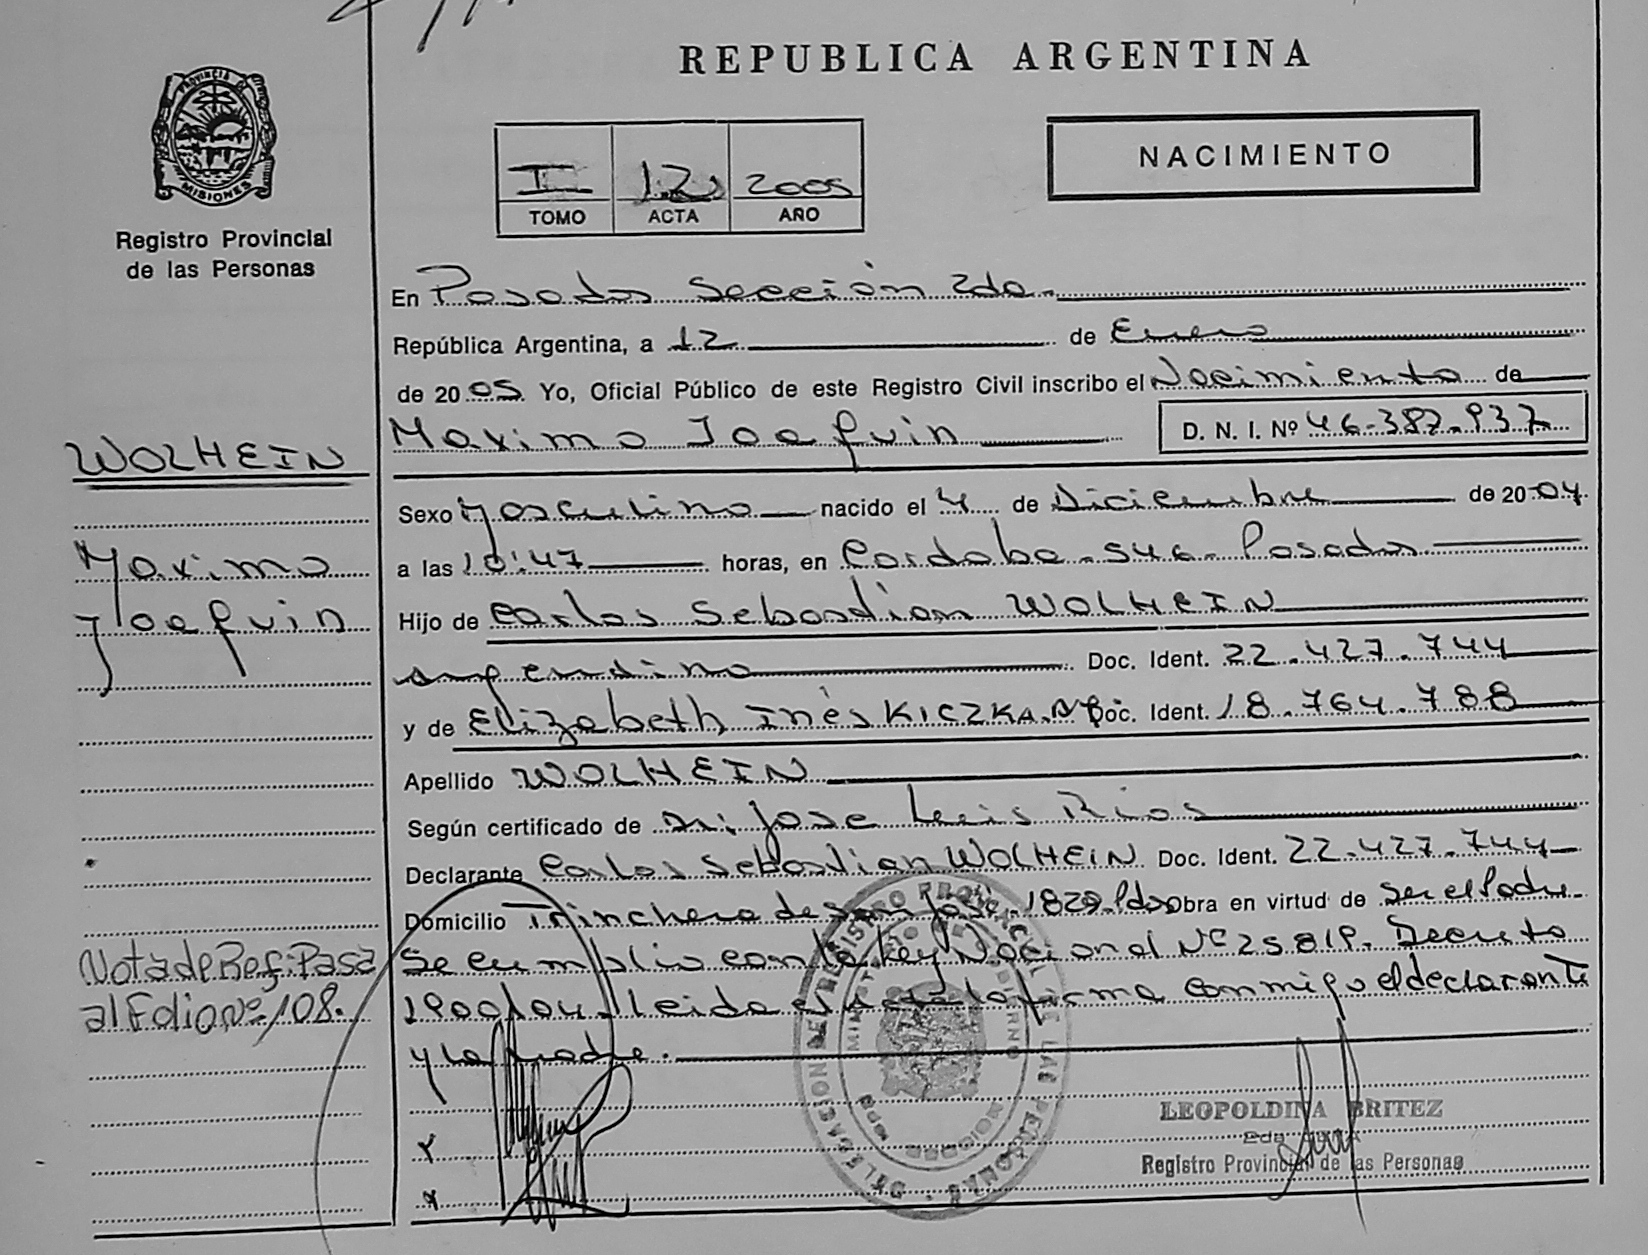 REPUBLICA ARGENTINA
PROVINCIA DE MISIONES
Registro Provincial
de las Personas
I 12 2005
TOMO ACTA AÑO
NACIMIENTO
En Posadas Sección 2da.
República Argentina, a 12 de Enero
de 2005 Yo, Oficial Público de este Registro Civil inscribo el Nacimiento de
Maximo Joaquin D. N. I. Nº 46.387.937
WOLHEIN
Maximo
Joaquin
Sexo Masculino nacido el 4 de Diciembre de 2004.
a las 10:47 horas, en Cordoba. Posadas
Hijo de Carlos Sebastian WOLHEIN
argentino Doc. Ident. 22.427.744
y de Elizabeth Inés KICZKA. Doc. Ident. 18.764.788
Apellido WOLHEIN
Según certificado de Jose Luis Rios
Declarante Carlos Sebastian WOLHEIN Doc. Ident. 22.427.744
Domicilio Trinchera de San José. 1829. Pdas Obra en virtud de ser el Padre.
Se cumplio con la Ley Nacional Nº 25.819. Decreto
1900/04. Leida el Acta la firma conmigo el declarante
y la madre.
Nota de Ref: Pasa
al Folio Nº 108.
DELEGACION REGISTRO PROVINCIAL DE LAS PERSONAS
LEOPOLDINA BRITEZ
Registro Provincial de las Personas